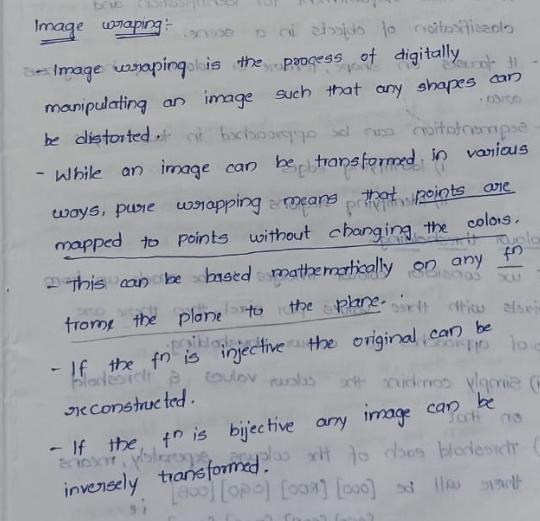 Image wraping:-
- Image wraping is the process of digitally
manipulating an image such that any shapes can
be distorted.
- While an image can be transformed in various
ways, pure wrapping means that points are
mapped to points without changing the colors.
- This can be based mathematically on any fn
from the plane to the plane.
- If the fn is injective the original can be
reconstructed.
- If the fn is bijective any image can be
inversely transformed.